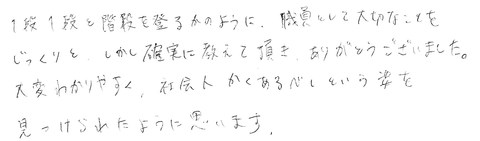 1段1段と階段を登るかのように、職員として大切なことを
じっくりと、しかし確実に教えて頂き、ありがとうございました。
大変わかりやすく、社会人かくあるべしという姿を
見つけられたように思います。